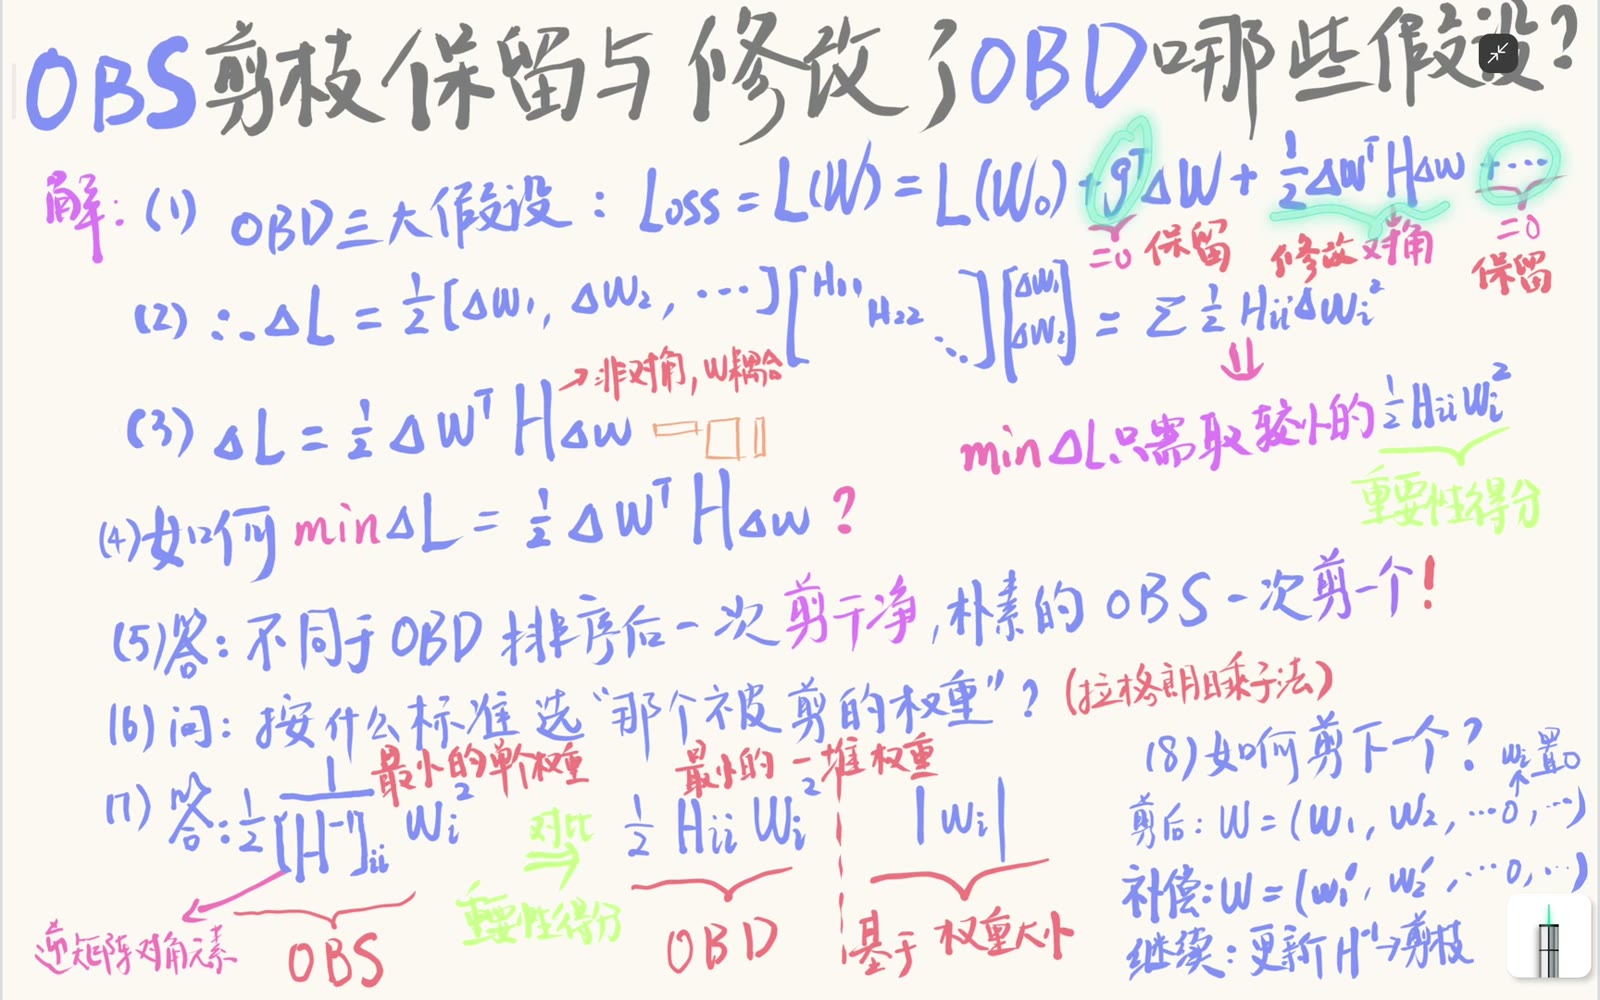 OBS剪枝保留与修改了OBD哪些假设?
解: (1) OBD三大假设: Loss = L(W) = L(W₀) + gᵀΔW + ½ΔWᵀHΔW + ⋯
=0 保留 修改对角 =0 保留
(2) ∴ ΔL = ½[ΔW₁, ΔW₂, ⋯] [H₁₁ H₂₂ ⋱] [ΔW₁ ΔW₂] = Σ ½ HᵢᵢΔWᵢ²
⇓
→非对角, W耦合
(3) ΔL = ½ΔWᵀHΔW
minΔL只需取较小的 ½HᵢᵢWᵢ²
重要性得分
(4)如何 minΔL = ½ΔWᵀHΔW ?
(5)答: 不同于OBD排序后一次剪干净, 朴素的OBS一次剪一个!
(6)问: 按什么标准选“那个被剪的权重”? (拉格朗日乘子法)
最小的单个权重 最小的一堆权重
(7)答: ½ 1/[H⁻¹]ᵢᵢ Wᵢ² 对比 ⇒ ½ Hᵢᵢ Wᵢ² |Wᵢ|
重要性得分
逆矩阵对角元素
OBS OBD 基于权重大小
(8)如何剪下一个?
Wᵢ置0
剪后: W = (W₁, W₂, ⋯0, ⋯)
补偿: W = (W₁′, W₂′, ⋯0, ⋯)
继续: 更新H⁻¹→剪枝